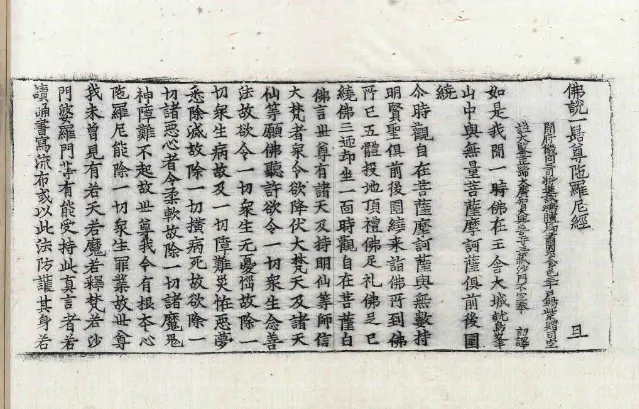 佛說一髻尊陀羅尼經 且
開府儀同三司特進試鴻臚卿肅國公食邑三千戶賜紫贈司空
謚大鑒正號大廣智大興善寺三藏沙門不空奉 詔譯
如是我聞一時佛在王舍大城鷲鳥峯
山中與無量菩薩摩訶薩俱前後圍
繞
介時觀自在菩薩摩訶薩與無數持
明賢聖俱前後圍繞來詣佛所到佛
所已五體投地頂禮佛足禮佛足已
繞佛三迊却坐一面時觀自在菩薩白
佛言世尊有諸天及持明仙等師信
大梵者衆令欲降伏大梵天及諸天
仙等願佛聽許欲令一切衆生念善
法故欲令一切衆生無憂惱故除一
切衆生病故及一切障難災恠惡夢
悉除滅故除一切橫病死故欲除一
切諸惡心者令柔軟故除一切諸魔鬼
神障難不起故世尊我今有根本心
陀羅尼能除一切衆生罪業故世尊
我未曾見有若天若魔若釋梵若沙
門婆羅門等有能受持此真言者若
讀誦書寫流布或以此法防護其身若